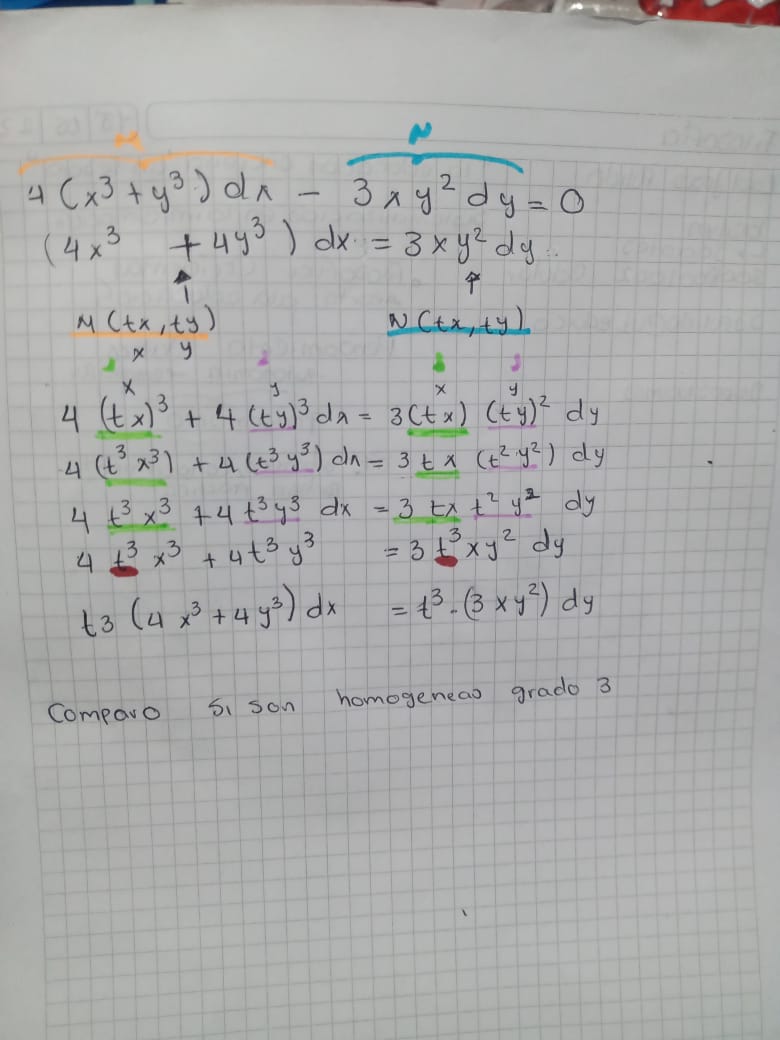 M N
4 (x³ + y³) dx - 3xy² dy = 0
(4x³ + 4y³) dx = 3xy² dy
M (tx, ty) N (tx, ty)
x y
x y x y
4 (tx)³ + 4 (ty)³ dx = 3(tx) (ty)² dy
4 (t³ x³) + 4 (t³ y³) dx = 3 tx (t² y²) dy
4 t³ x³ + 4 t³ y³ dx = 3 tx t² y² dy
4 t³ x³ + 4t³ y³ = 3 t³ xy² dy
t3 (4x³ + 4y³) dx = t³ . (3xy²) dy
Comparo si son homogeneas grado 3